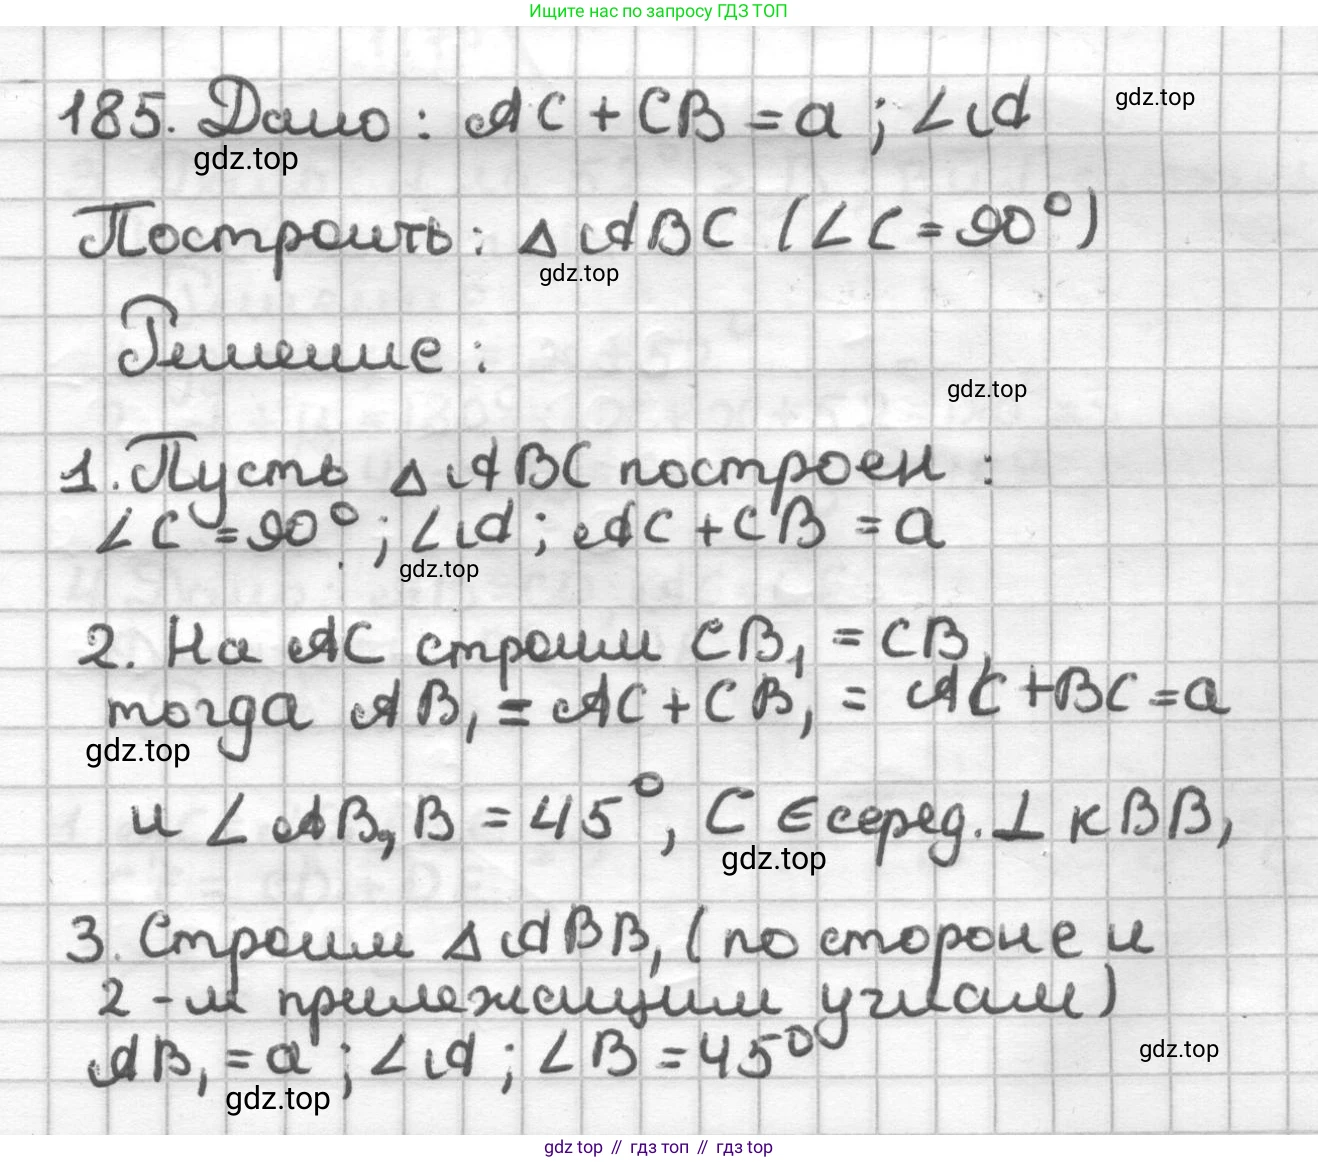 Ищите нас по запросу ГДЗ ТОП
185. Дано: AC + CB = a; ∠A
gdz.top
gdz.top
Построить: △ABC (∠C = 90°)
gdz.top
Решение:
gdz.top
1. Пусть △ABC построен:
∠C = 90°; ∠A; AC + CB = a
gdz.top
2. На AC строим CB₁ = CB,
тогда AB₁ = AC + CB₁ = AC + BC = a
gdz.top
и ∠AB₁B = 45°, C ∈ серед. ⊥ к BB₁
gdz.top
3. Строим △ABB₁ (по стороне и
2-м прилежащим углам)
AB₁ = a; ∠A; ∠B = 45°
gdz.top
gdz.top
gdz top // гдз топ // гдз top